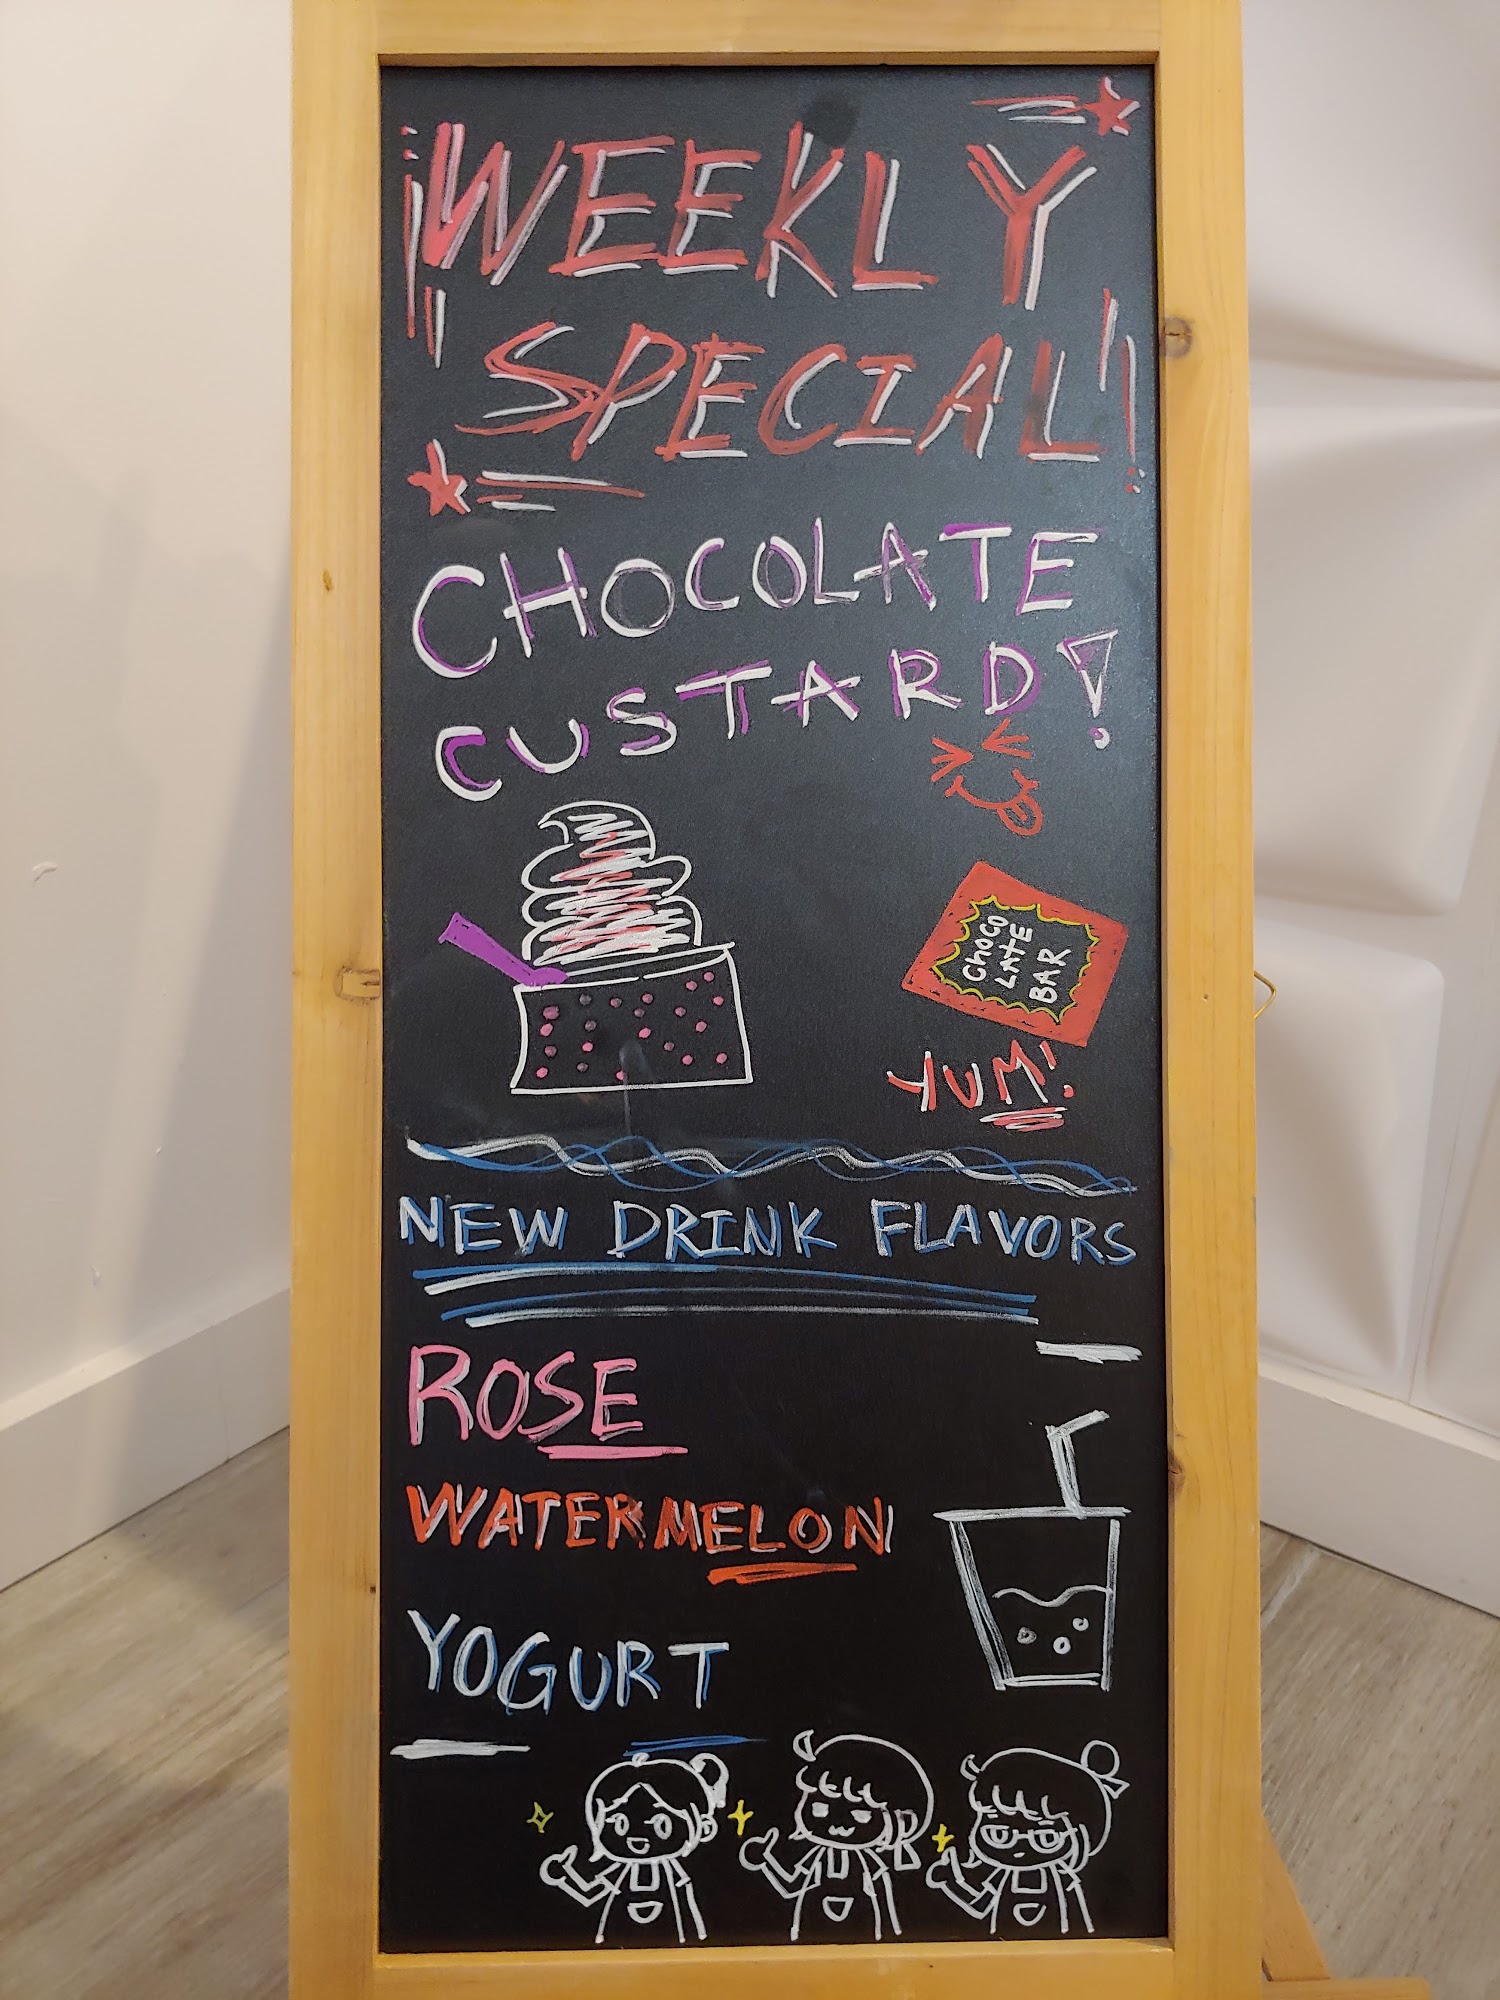 WEEKLY
SPECIAL
CHOCOLATE
CUSTARD!
CHOCO
LATE
BAR
YUM!
NEW DRINK FLAVORS
ROSE
WATERMELON
YOGURT